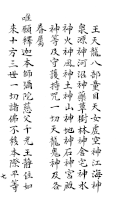 王天龍八部童目天女虛空神江海神
泉源神河沼神藥草樹林神舍宅神水
神火神風神土神山神地神石神宮殿
神等及守護持呪一切天龍鬼神及各
眷屬
唯願釋迦本師彌陀慈父千光王靜住如
來十方三世一切諸佛不移本際平等
七